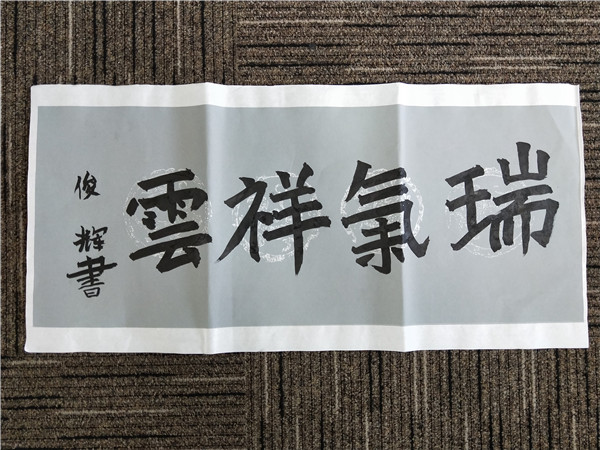 瑞氣祥雲
俊輝書